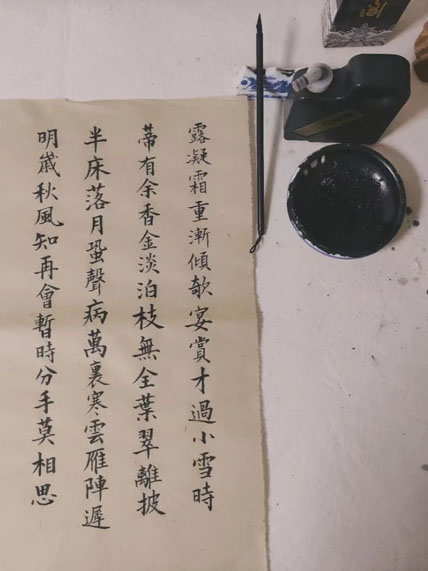 露凝霜重漸傾欹宴賞才過小雪時
蒂有余香金淡泊枝無全葉翠離披
半床落月蛩聲病萬裏寒雲雁陣遲
明嵗秋風知再會暫時分手莫相思